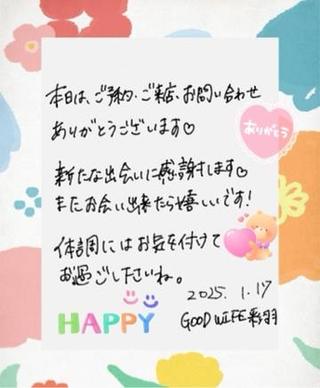 本日は、ご予約・ご来店、お問い合わせ
ありがとうございます♡
ありがとう
新たな出会いに感謝します♡
またお会い出来たら嬉しいです!
体調にはお気を付けて
お過ごしくださいね。
2025. 1.17
HAPPY
GOOD WIFE 彩羽